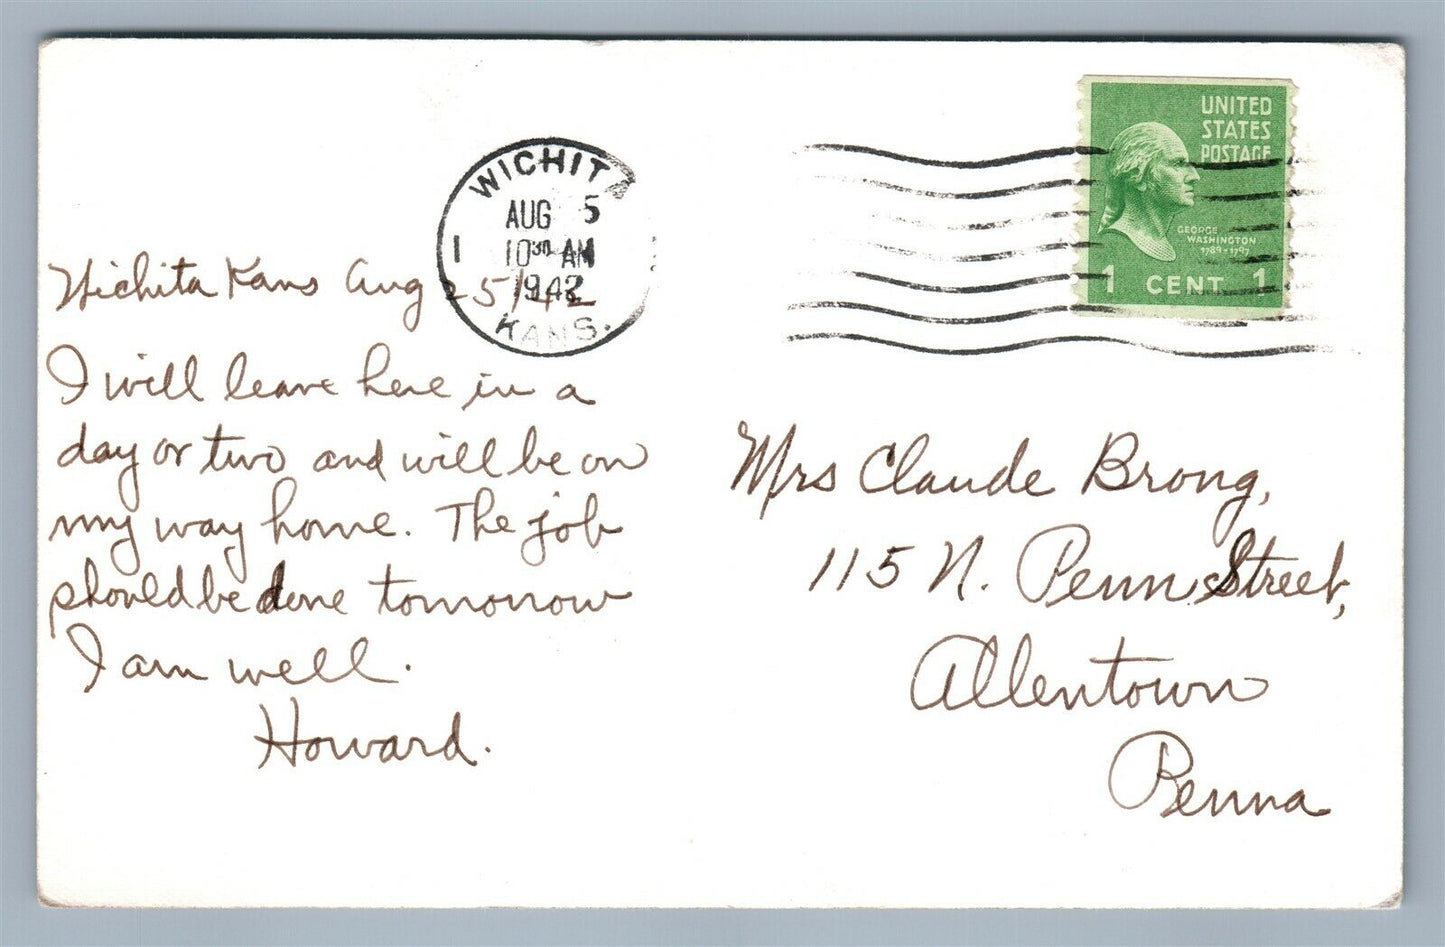 WICHITA
AUG 5
10 30 AM
1942
KANS.
1
UNITED
STATES
POSTAGE
GEORGE
WASHINGTON
1789-1797
1 CENT 1
Wichita Kans Aug 25/42
I will leave here in a
day or two and will be on
my way home. The job
should be done tomorrow
I am well.
Howard.
Mrs Claude Brong,
115 N. Penn Street,
Allentown
Penna